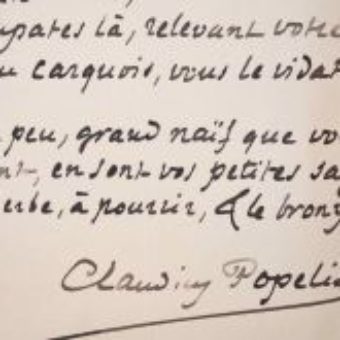 pates là, relevant votre
u carquois, vous le vidat
peu, grand naïf que vo
nt, en sont vos petites sa
erbe, à pourrir, & le bronz
Claudius Popelin